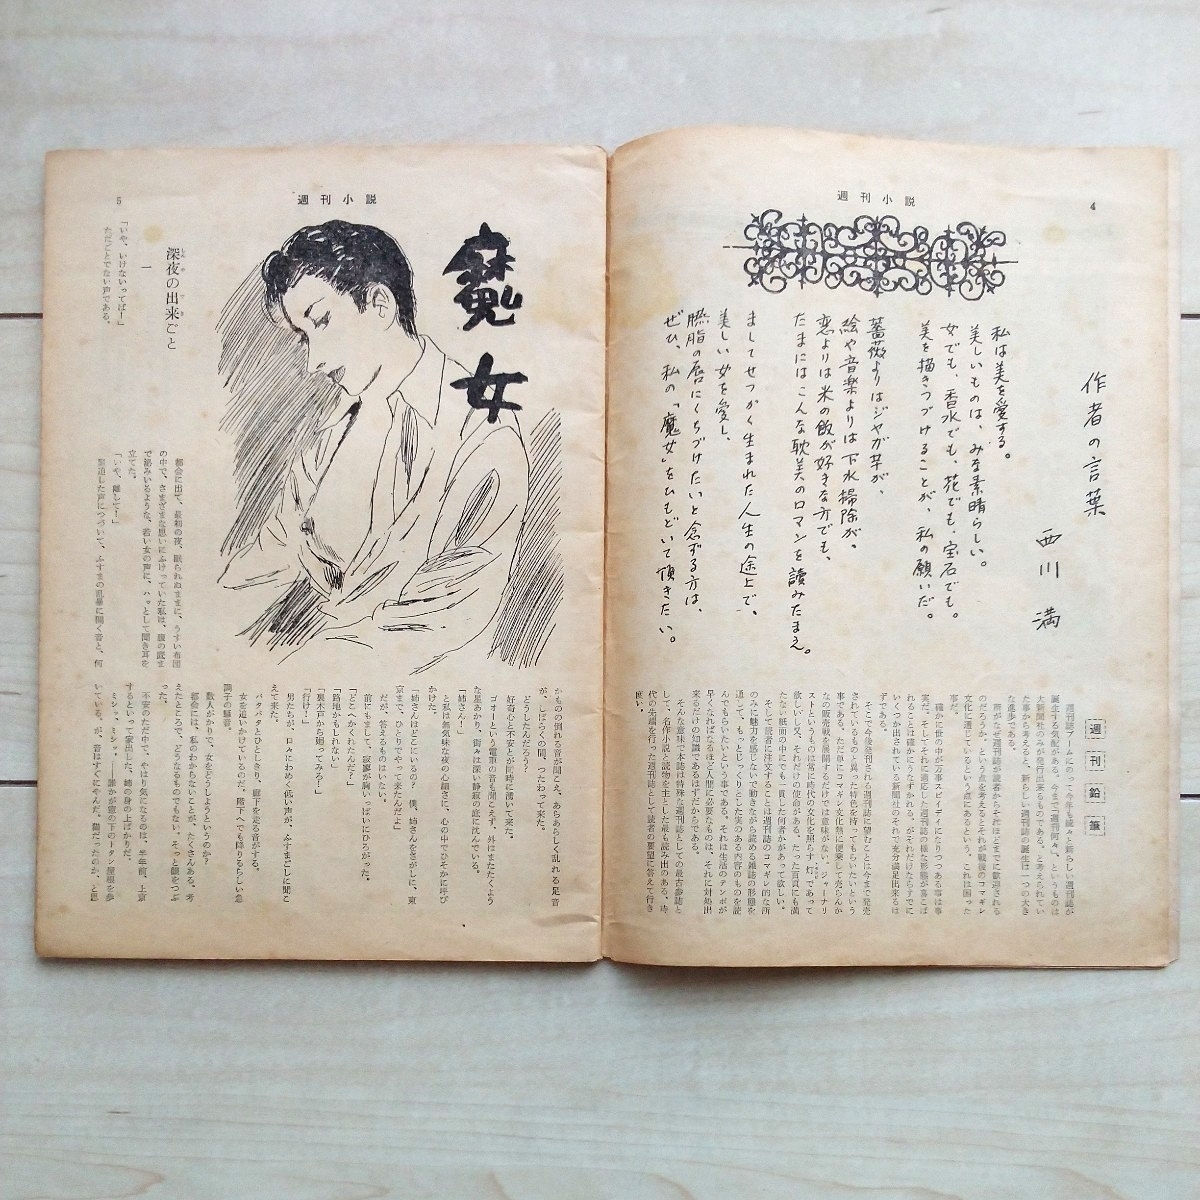 4
週刊小説
作者の言葉
西川満
私は美を愛する。
美しいものは、みな素晴らしい。
女でも、香水でも、花でも、宝石でも。
美を描きつづけることが、私の願いだ。
薔薇よりはジャガ芋が、
絵や音楽よりは下水掃除が。
恋よりは米の飯が好きな方でも、
たまにはこんな耽美のロマンを讀みたまえ。
ましてせっかく生まれた人生の途上で、
美しい女を愛し、
臙脂の唇にくちづけたいと念ずる方は、
ぜひ、私の「魔女」をひもどいて頂きたい。
週刊鉛筆
週刊誌ブームにのって今年も続々と新らしい週刊誌が
誕生する気配がある。今まで週刊何々、というものは
大新聞社のみが発行出来るものである。と考えられてい
た事から考えると、新らしい週刊誌の誕生は一つの大き
な進歩である。
所がなぜ週刊誌が読者からそれほどまでに歓迎される
のだろうか、という事を考えるとそれが戦後のコマギレ
文化に通じているという点にあるという。これは困った
事だ。
確かに世の中が万事スピイディになりつつある事は事
実だ。そしてそれに適応した週刊誌の様な形態が喜こば
れることは確かにうなずかれる。がそれだけならすでに
いくつか出されている新聞社のそれで充分満足出来るは
ずである。
そこで今後発刊される週刊誌に望むことは今まで発売
されているものと異った特色を持ってもらいたいという
事である。ただ単にコマギレ文化熱に便乗して売らんか
なの販売戦を展開するだけでは意味がない。ジャーナリ
ストというものは常に時代の文化を照らす“灯”であって
欲しいし又、それだけの使命がある。たった百頁にも満
たない紙面の中にでも一貫した何者かがあって欲しい。
そして読者に注文することは週刊誌のコマギレ的な所
のみに魅力を感じないで動きながら読める雑誌の形態を
通じて、もっとじっくりとした実のある内容のものを読
んでもらいたいという事である。それは生活のテンポが
早くなればなるほど人間に必要なものは、それに対処出
来るだけの知識であるはずだからである。
そんな意味で本誌は特殊な週刊誌としての最古参誌と
して、名作小説と読物を主とした最も読み出のある、時
代の先端を行った週刊誌として読者の要望に答えて行き
度い。
週刊小説
5
魔女
深夜の出来ごと
しんや
でき
一
「いや、いけないってば！」
ただごとでない声である。
都会に出て、最初の夜、眠られぬままに、うすい布団
の中で、さまざまな思いにふけっていた私は、腹の底ま
で滲みいるような、若い女の声に、ハッとして聞き耳を
立てた。
「いや、離して！」
緊迫した声につづいて、ふすまの乱暴に開く音と、何
かものの倒れる音が聞こえ、あらあらしく乱れる足音
が、しばらくの間、つたわって来た。
どうしたんだろう？
好奇心と不安とが同時に湧いて来た。
ゴォーという電車の音も聞こえず、外はまたたくよう
な星あかり、街々は深い静寂の底に沈んでいる。
「姉さん！」
と私は無気味な夜の心細さに、心の中でひそかに呼び
かけた。
「姉さんはどこにいるの？　僕、姉さんをさがしに、東
京まで、ひとりでやって来たんだよ」
だが、答えるものはない。
前にもまして、寂寥が胸いっぱいにひろがった。
「どこへかくれたんだ？」
「路地かもしれない」
「裏木戸から廻ってみろ！」
「行け！」
男たちが、口々にわめく低い声が、ふすまごしに聞こ
えて来た。
バタバタとひとしきり、廊下を走る音がする。
女を追いかけているのだ。階下へでも降りるらしい急
調子の騒音。
数人がかりで、女をどうしようというのか？
都会には、私のわからないことが、たくさんある。考
えたところで、どうなるものでもない。そっと瞼をつぶ
った。
不安のただ中で、やはり気になるのは、半年前、上京
するといって家出した、姉の身の上ばかりだ。
ミシッ、ミシッ、――誰かが窓の下のトタン屋根を歩
いている。が、音はすぐにやんだ。猫だったのか、と思